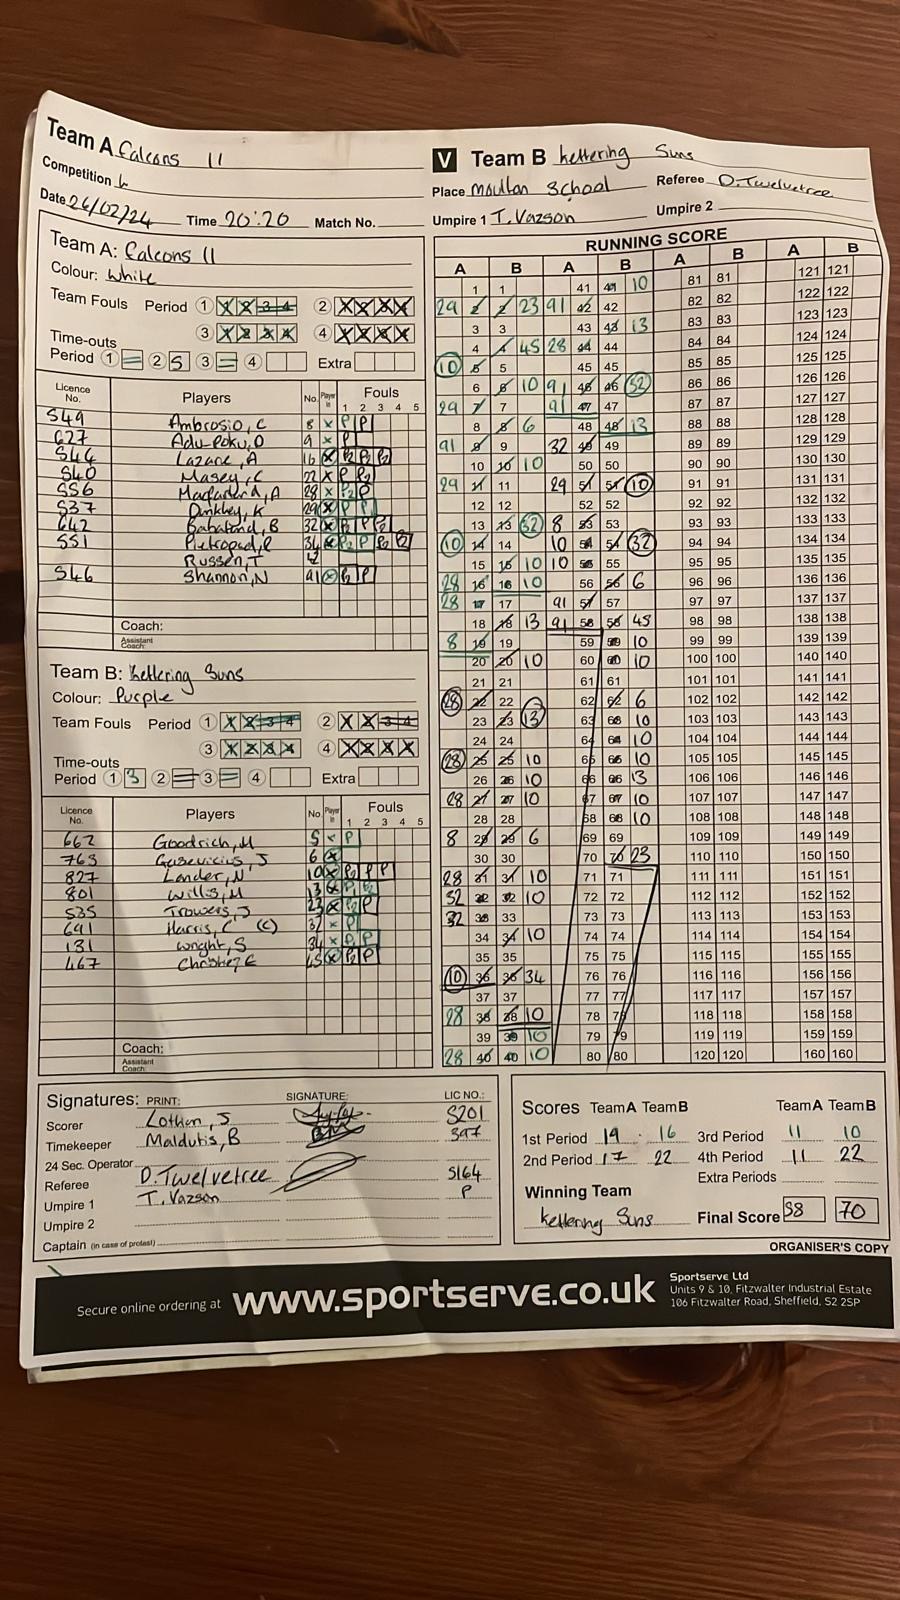 Team A Falcons II
V Team B Kettering Suns
Competition L
Place Moulton School Referee D. Twelvetree
Date 26/02/24 Time 20:20 Match No.
Umpire 1 T. Vazson Umpire 2
Team A: Falcons II
Colour: White
Team Fouls Period 1 1 2 3 4 2 1 2 3 4
3 1 2 3 4 4 1 2 3 4
Time-outs
Period 1 2 5 3 4 Extra
Licence No. Players No. Player in Fouls
1 2 3 4 5
S49 Ambrosio, C 8 x P P
627 Adu-Poku, O 9 x P
S44 Lazare, A 16 x P2 P2 P2
S40 Masey, C 22 x P P2
SS6 28 x P2 P
S37 29 x P P
642 32 x P2 P P2
SS1 34 x P2 P P2 P2
Russen, T 42
S46 Shannon, N 91 x P2 P
Coach:
Assistant Coach:
Team B: Kettering Suns
Colour: Purple
Team Fouls Period 1 1 2 3 4 2 1 2 3 4
3 1 2 3 4 4 1 2 3 4
Time-outs
Period 1 3 2 3 4 Extra
Licence No. Players No. Player in Fouls
1 2 3 4 5
662 Goodrich, M 5 x P
763 6 x
827 Lander, N 10 x P2 P P
801 Willis, M 13 x P1 P2
535 Trowers, J 23 x P2 P
691 Harris, C (C) 32 x P
131 Wright, S 34 x P P
467 45 x P2 P
Coach:
Assistant Coach:
RUNNING SCORE
A B A B A B A B
1 1 41 41 10 81 81 121 121
29 2 2 23 91 42 42 82 82 122 122
3 3 43 43 13 83 83 123 123
4 4 45 28 44 44 84 84 124 124
10 5 5 45 45 85 85 125 125
6 6 10 91 46 46 32 86 86 126 126
29 7 7 91 47 47 87 87 127 127
8 8 6 48 48 13 88 88 128 128
91 9 9 32 49 49 89 89 129 129
10 10 10 50 50 90 90 130 130
29 11 11 29 51 51 10 91 91 131 131
12 12 52 52 92 92 132 132
13 13 32 8 53 53 93 93 133 133
10 14 14 10 54 54 32 94 94 134 134
15 15 10 10 55 55 95 95 135 135
28 16 16 10 56 56 6 96 96 136 136
28 17 17 91 57 57 97 97 137 137
18 18 13 91 58 58 45 98 98 138 138
8 19 19 59 59 10 99 99 139 139
20 20 10 60 60 10 100 100 140 140
21 21 61 61 101 101 141 141
28 22 22 62 62 6 102 102 142 142
23 23 13 63 63 10 103 103 143 143
24 24 64 64 10 104 104 144 144
28 25 25 10 65 65 10 105 105 145 145
26 26 10 66 66 13 106 106 146 146
28 27 27 10 67 67 10 107 107 147 147
28 28 68 68 10 108 108 148 148
8 29 29 6 69 69 109 109 149 149
30 30 70 70 23 110 110 150 150
28 31 31 10 71 71 111 111 151 151
32 32 32 10 72 72 112 112 152 152
32 33 33 73 73 113 113 153 153
34 34 10 74 74 114 114 154 154
35 35 75 75 115 115 155 155
10 36 36 34 76 76 116 116 156 156
37 37 77 77 117 117 157 157
28 38 38 10 78 78 118 118 158 158
39 39 10 79 79 119 119 159 159
28 40 40 10 80 80 120 120 160 160
Signatures: PRINT: SIGNATURE: LIC NO.:
Scorer Lothan, J S201
Timekeeper Maldutis, B 397
24 Sec. Operator
Referee D. Twelvetree S164
Umpire 1 T. Vazson P
Umpire 2
Captain (in case of protest)
Scores Team A Team B Team A Team B
1st Period 19 16 3rd Period 11 10
2nd Period 17 22 4th Period 11 22
Extra Periods
Winning Team
Kettering Suns Final Score 58 70
ORGANISER'S COPY
Secure online ordering at www.sportserve.co.uk
Sportserve Ltd
Units 9 & 10, Fitzwalter Industrial Estate
106 Fitzwalter Road, Sheffield, S2 2SP